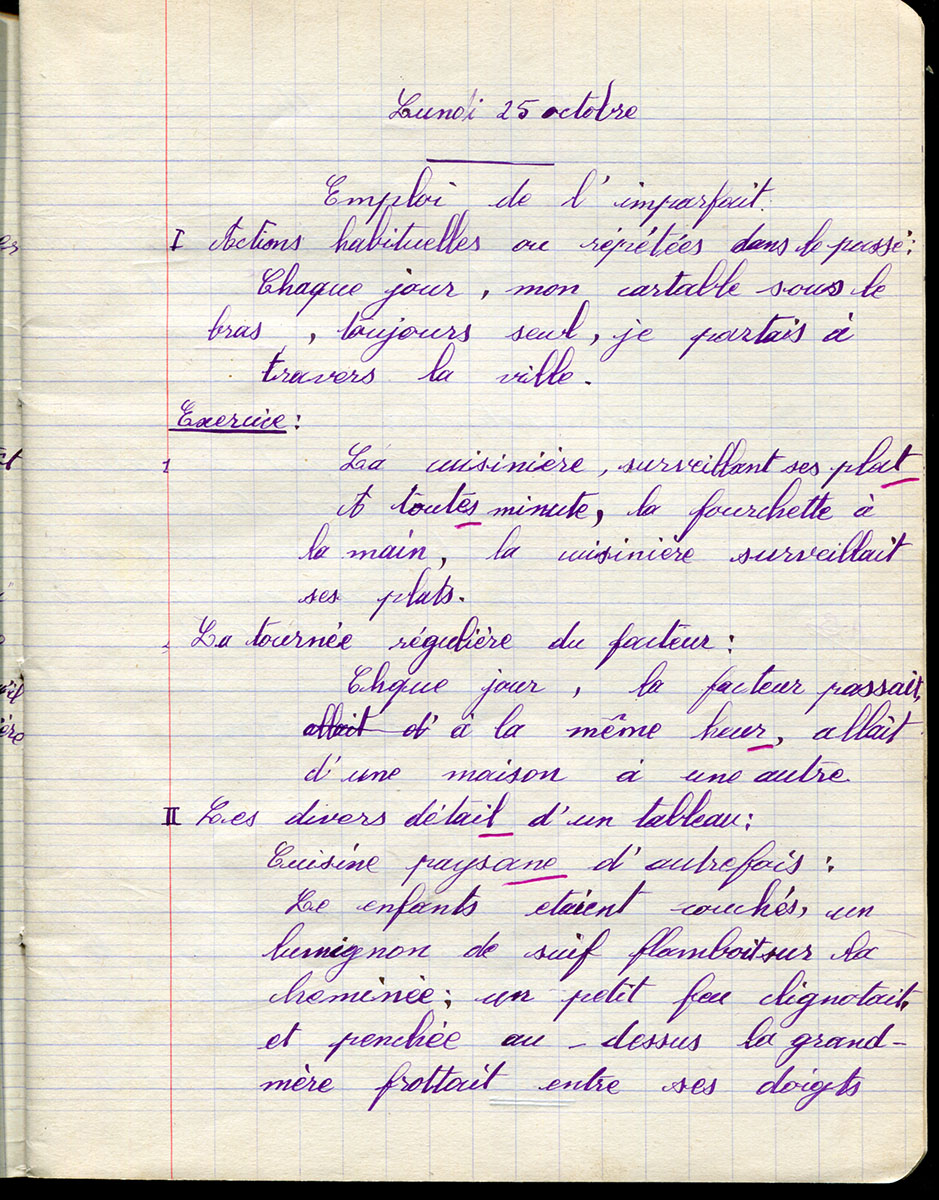 Lundi 25 octobre
Emploi de l'imparfait.
I Actions habituelles ou répétées dans le passé:
Chaque jour, mon cartable sous le
bras, toujours seul, je partais à
travers la ville.
Exercice:
1 La cuisinière, surveillant ses plat
A toutes minute, la fourchette à
la main, la cuisinière surveillait
ses plats.
La tournée régulière du facteur:
Chque jour, la facteur passait,
allait d' à la même heur, allait
d'une maison à une autre
II Les divers détail d'un tableau:
Cuisine paysane d'autrefois:
Le enfants etaient couchés, un
lumignon de suif flamboit sur la
cheminée; un petit feu clignotait,
et penchée au-dessus la grand-
mère frottait entre ses doigts